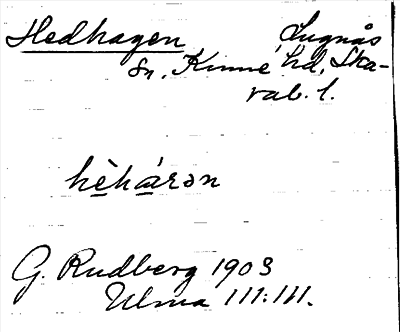 Hedhagen, Lugnås
sn, Kinne hd, Ska-
rab. l.
hèhárən
G. Rudberg 1903
Ulma 111:111.